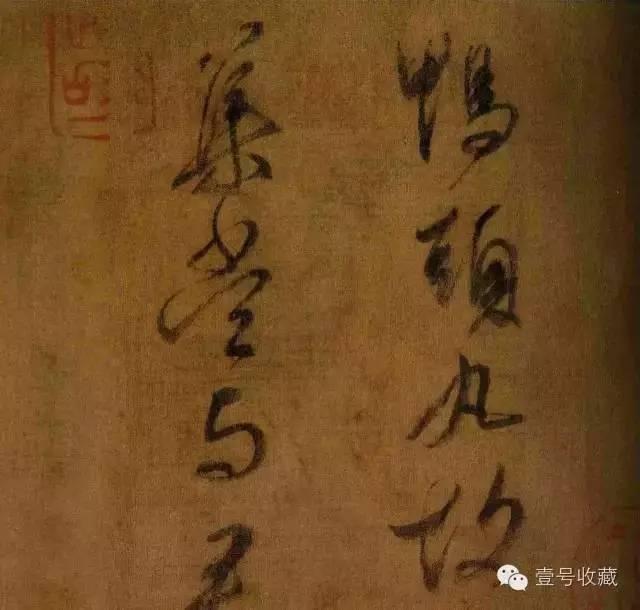 鴨頭丸故
集當與君
壹号收藏